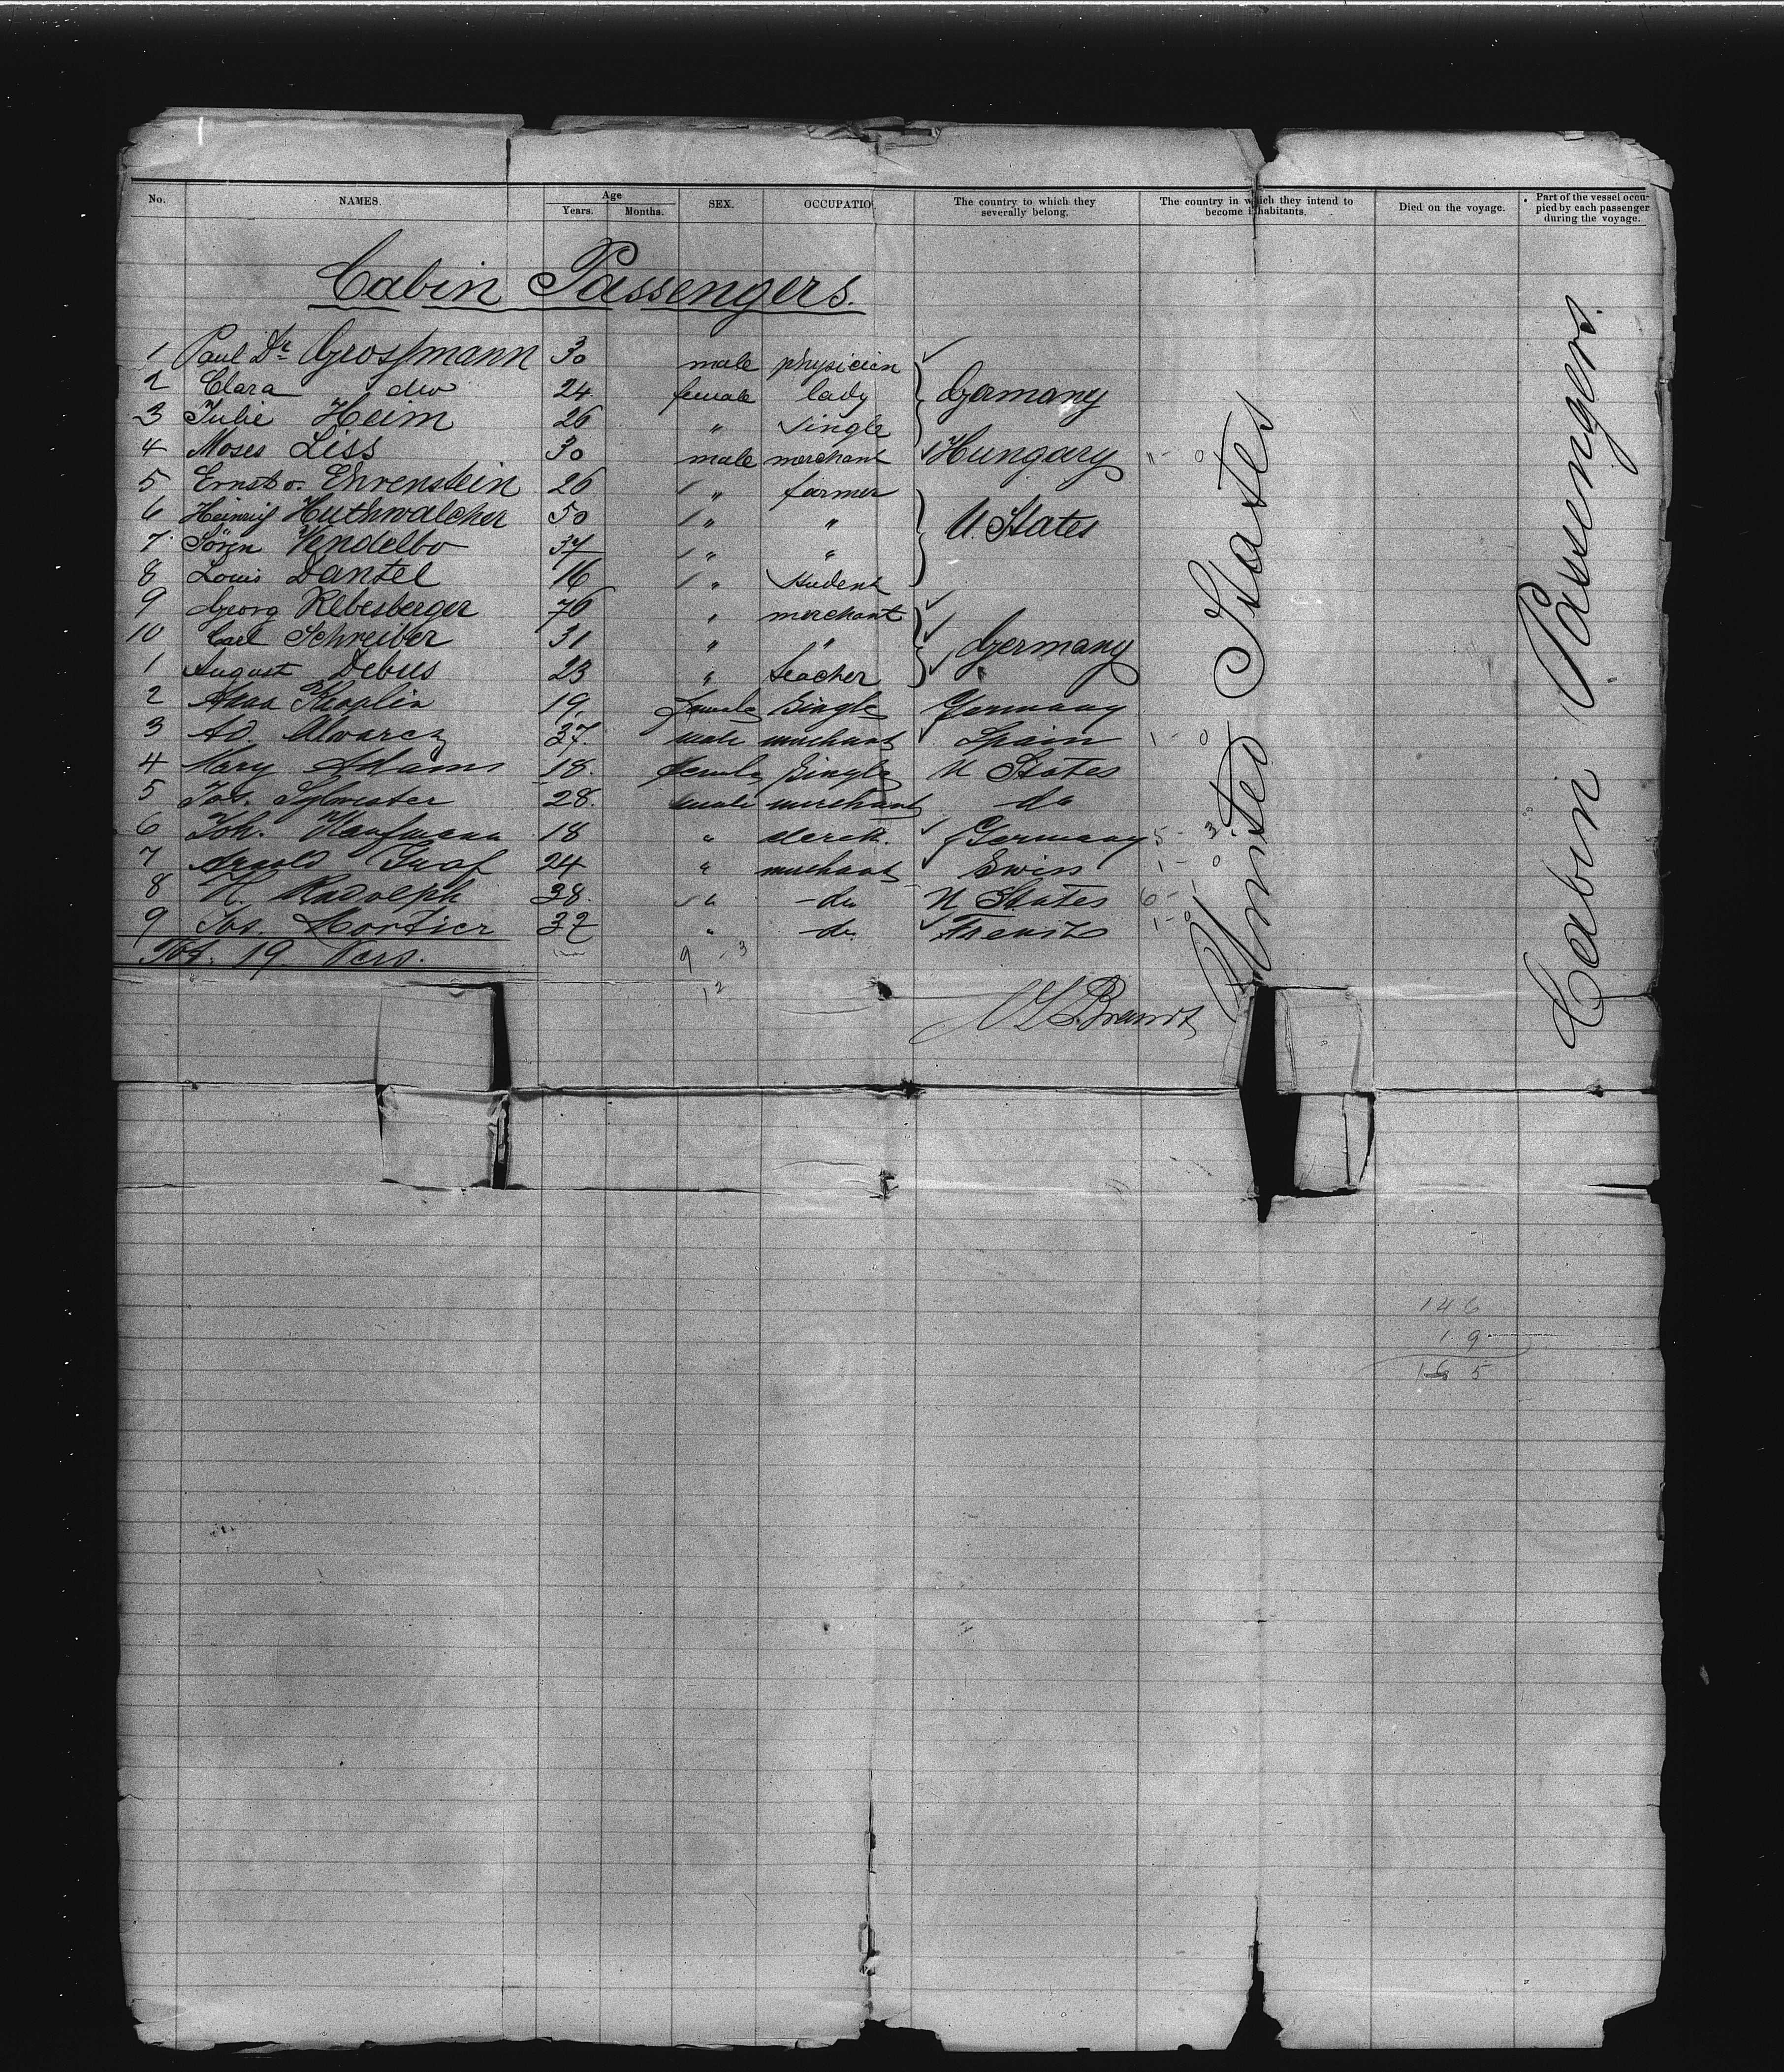 No. NAMES. Age Years. Months. SEX. OCCUPATIO The country to which they severally belong. The country in which they intend to become inhabitants. Died on the voyage. Part of the vessel occupied by each passenger during the voyage.
Cabin Passengers.
1 Paul Dr Grossmann 30 male physician
2 Clara do 24 female lady Germany
3 Julie Heim 26 " single
4 Moses Liss 30 male merchant Hungary 1 - 0
5 Ernst v. Ehrenstein 26 " farmer
6 Heinrich Huthwalcher 50 " " U. States
7 Sören Vendelbo 37 " "
8 Louis Dantel 16 " student
9 Georg Rebesberger 76 " merchant
10 Carl Schreiber 31 " " Germany
1 August Debus 23 " teacher
2 Anna Kaplin 19 female Single Germany
3 Ad. Alvarez 37. male merchant Spain 1 - 0
4 Mary Adams 18. female Single U States
5 Jos. Sylvester 28. male merchant do
6 Joh. Kaufmann 18 " clerk. Germany 5 - 3
7 Arnold Graf 24 " merchant Swiss 1 - 0
8 H. Radolph 38. " do U States 6 - 1
9 Jos. Mortier 32 " do. 1 - 0
Tot. 19 Pers. 9 - 3
12
Brandt
United States
Cabin Passengers.
146
19
165